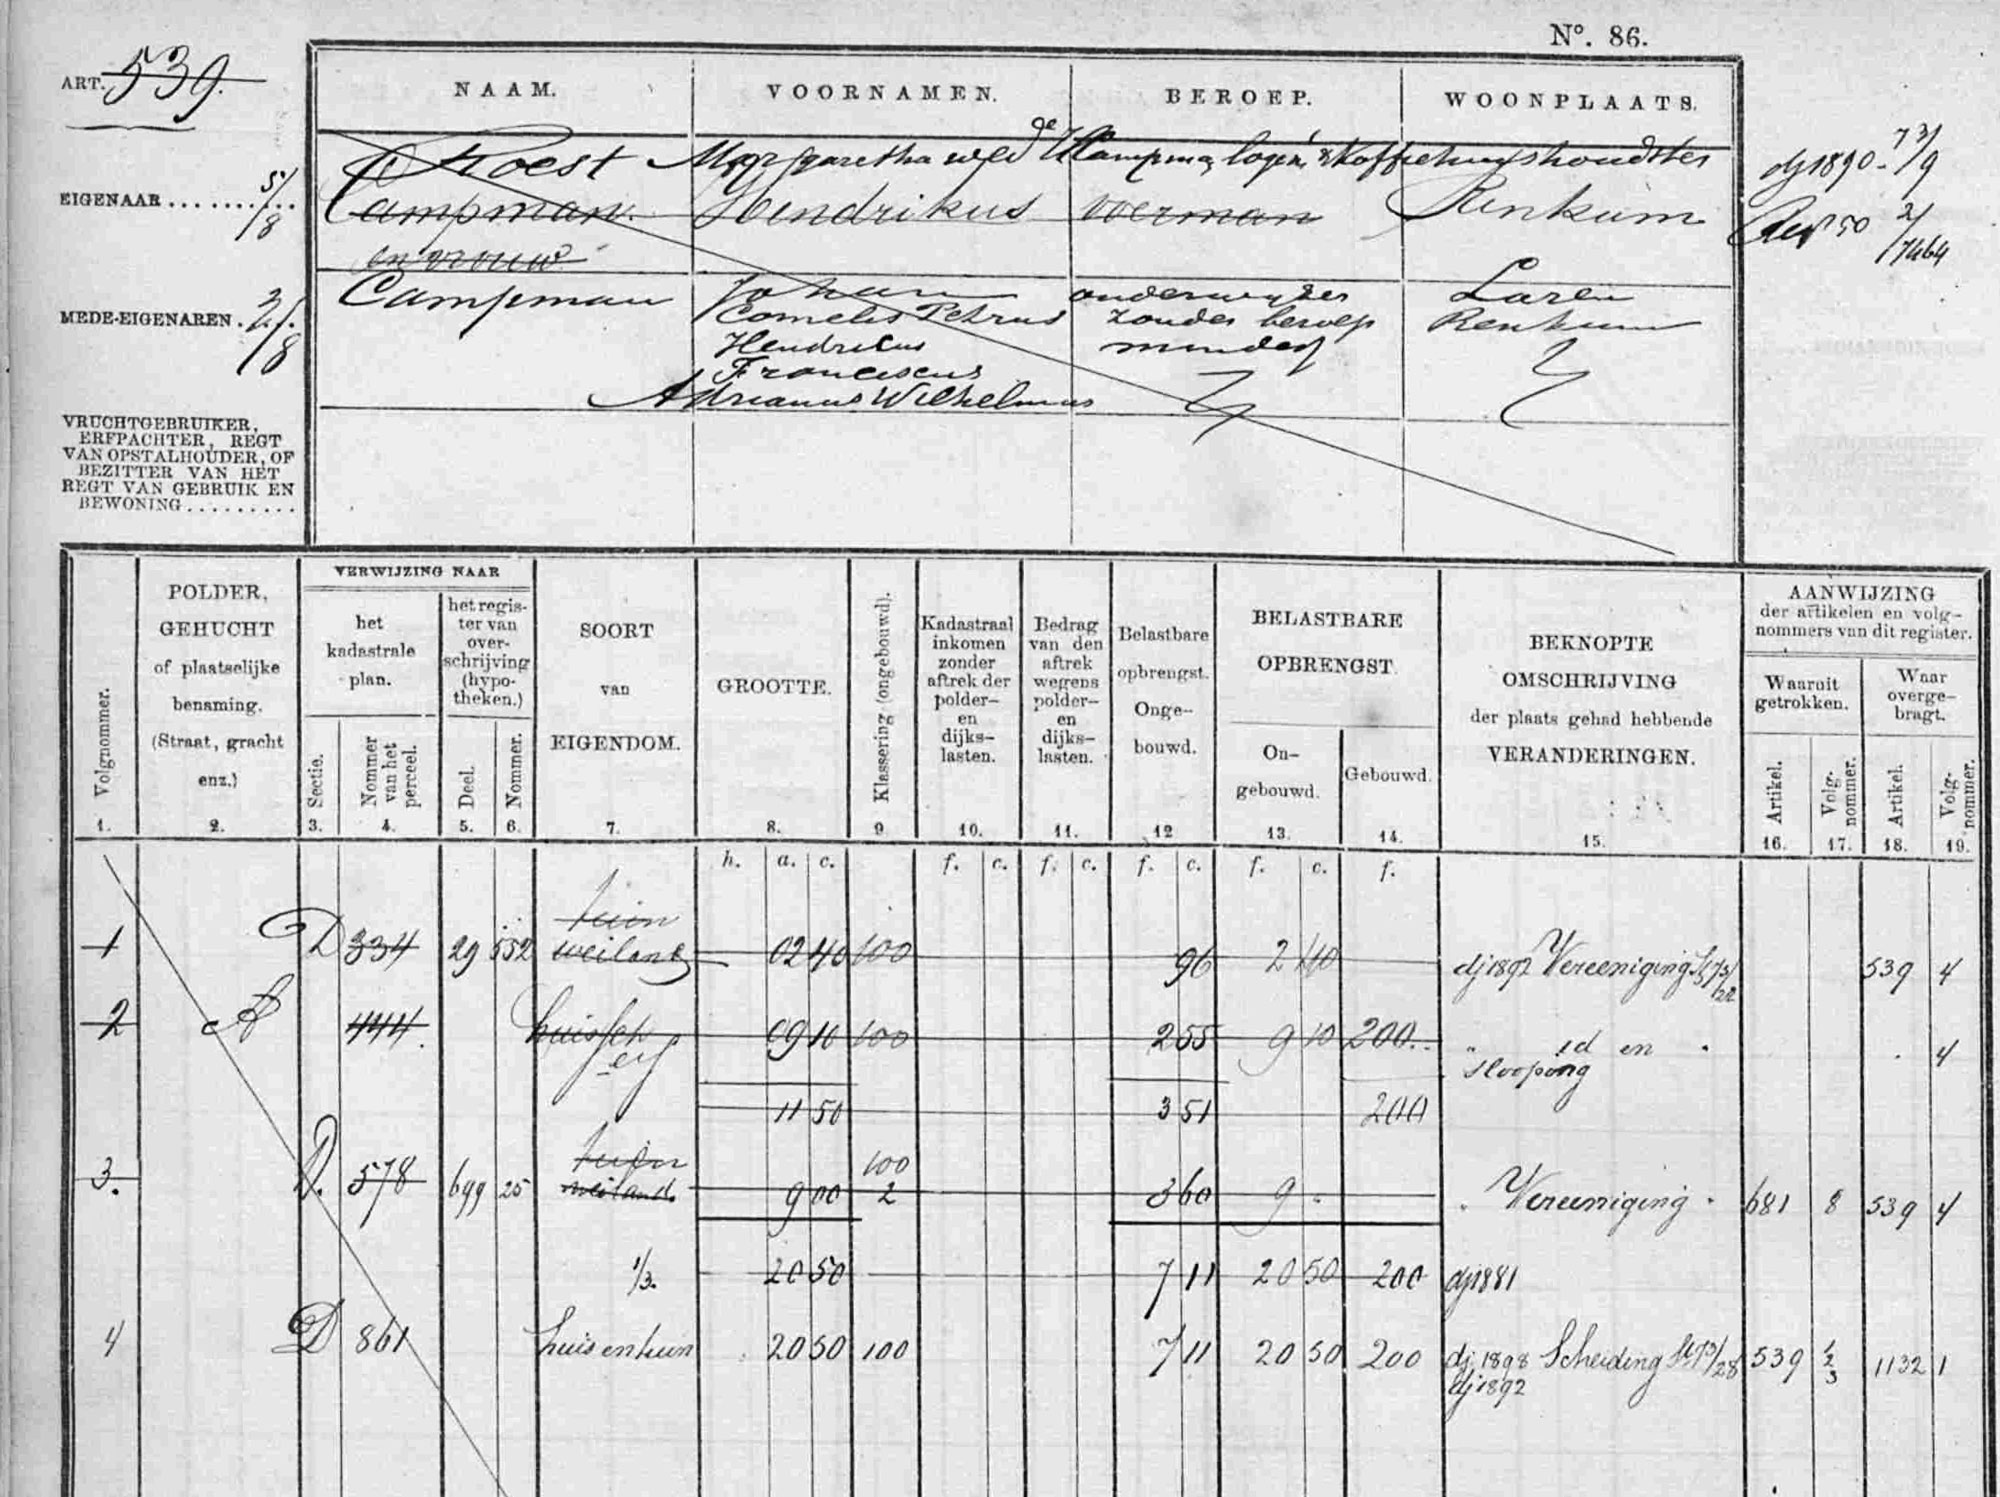 Nº. 86.
ART. 539.
NAAM. VOORNAMEN. BEROEP. WOONPLAATS.
Roest Margaretha wed de H Campman logem & Koffiehuyshoudster
dj 1890 - 73/9
EIGENAAR . . . . . . . . . 5/8 Campman. Hendrikus voerman Renkum
50 2/7464
en vrouw
MEDE-EIGENAREN . 3/8 Campman Johan onderwyzer Laren
Cornelis Petrus zonder beroep Renkum
Hendrikus minderj
Franciscus
Adrianus Wilhelmus
VRUCHTGEBRUIKER,
ERFPACHTER, REGT
VAN OPSTALHOUDER, OF
BEZITTER VAN HET
REGT VAN GEBRUIK EN
BEWONING . . . . . . . . .
Volgnommer.
POLDER,
GEHUCHT
of plaatselijke
benaming.
(Straat, gracht
enz.)
VERWIJZING NAAR
het
kadastrale
plan.
het regis-
ter van
over-
schrijving
(hypo-
theken.)
Sectie.
Nommer
van het
perceel.
Deel.
Nommer.
SOORT
van
EIGENDOM.
GROOTTE.
Klassering (ongebouwd).
Kadastraal
inkomen
zonder
aftrek der
polder-
en
dijks-
lasten.
Bedrag
van den
aftrek
wegens
polder-
en
dijks-
lasten.
Belastbare
opbrengst.
Onge-
bouwd.
BELASTBARE
OPBRENGST.
On-
gebouwd.
Gebouwd.
BEKNOPTE
OMSCHRIJVING
der plaats gehad hebbende
VERANDERINGEN.
AANWIJZING
der artikelen en volg-
nommers van dit register.
Waaruit
getrokken.
Waar
overge-
bragt.
Artikel.
Volg-
nommer.
Artikel.
Volg-
nommer.
1. 2. 3. 4. 5. 6. 7. 8. 9 10. 11. 12 13. 14. 15. 16. 17. 18. 19.
h. a. c. f. c. f. c. f. c. f. c. f.
tuin
1 D 334 29 552 weiland 02 40 100 96 2 40 dj 1892 Vereeniging 73/22 539 4
2 A 444. huis sch erf 09 10 100 2 55 9 10 200. " id en " 4
slooping
11 50 3 51 200
tuin 100
3. D. 578 699 25 weiland 9 00 2 3 60 9 . " Vereeniging " 681 8 539 4
1/3. 20 50 7 11 20 50 200 dj 1881
4 D 861 huis en tuin 20 50 100 7 11 20 50 200 dj. 1898 Scheiding 73/28 539 1 2 3 1132 1
dj 1892